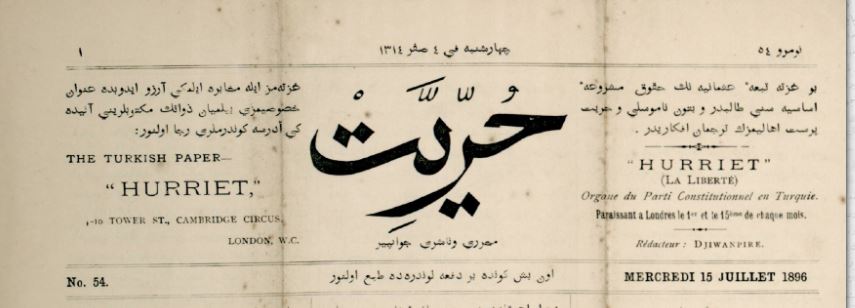 نومرو ٥٤
چهارشنبه فی ٤ صفر ١٣١٤
١
بو غزته تبعهٔ عثمانیه نك حقوق مشروعهٔ
اساسیه سنی طالبدر و بتون ناموسلی و حریت
پرست اهالیمزك ترجمان افكاریدر.
"HURRIET"
(LA LIBERTÉ)
Organe du Parti Constitutionnel en Turquie.
Paraissant a Londres le 1er et le 15ème de chaque mois.
Rédacteur: DJIWANPIRE.
حُرِّيَّتْ
محرری و ناشری جوانپیر
غزته مز ایله مخابره ایتمكی آرزو ایدوبده عنوان
خصوصیمزی بیلمیان ذواتك مكتوبلرینی آتیده
كی آدرسه كوندرملری رجا اولنور:
THE TURKISH PAPER—
"HURRIET,"
-10 TOWER ST., CAMBRIDGE CIRCUS,
LONDON, W.C.
No. 54.
اون بش كونده بر دفعه لوندره ده طبع اولنور
MERCREDI 15 JUILLET 1896